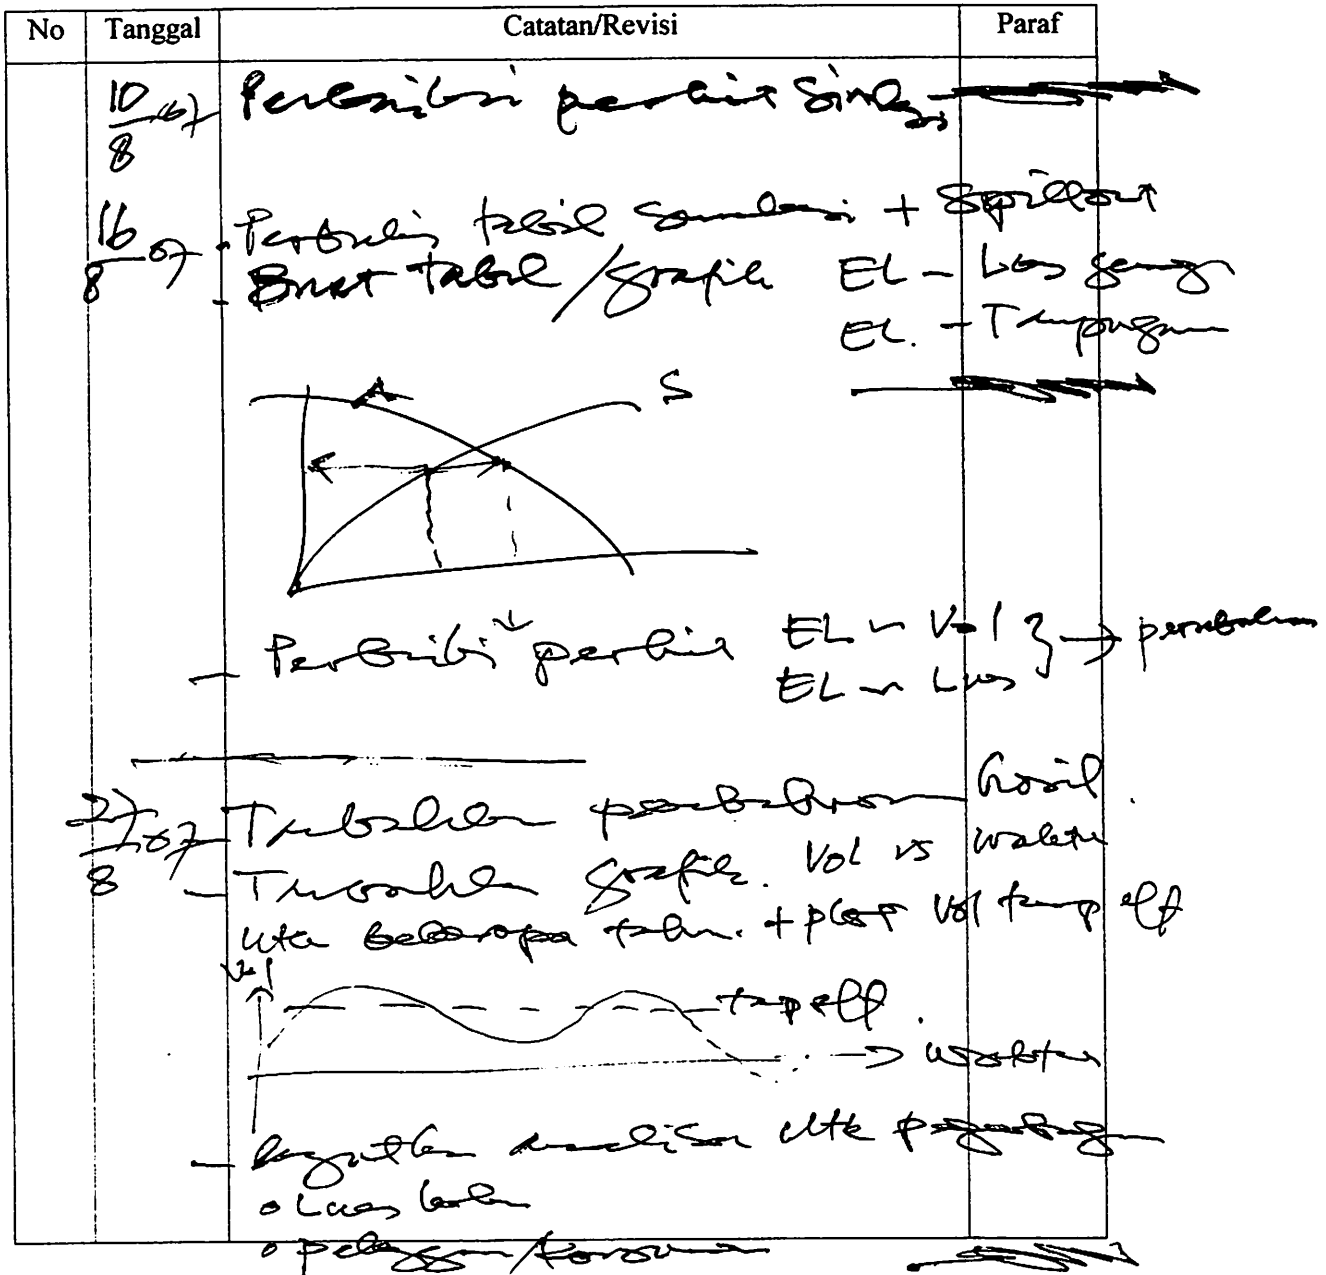 No Tanggal Catatan/Revisi Paraf
10/8 07 Perbaiki
16/8 07 - Perbaiki tabel simulasi + Spillout
- Buat tabel/grafik EL - Luas genang
EL. - Tampungan
A S
- Perbaiki EL ~ Vol } →
EL ~ Luas
27/8 07 - Tambahkan pembahasan hasil.
- Tambahkan grafik. Vol vs waktu
utk beberapa tahun. + plot vol tamp eff
Vol
tamp eff.
→ waktu
- lanjutkan analisa utk
o Luas lahan
o pelanggan/